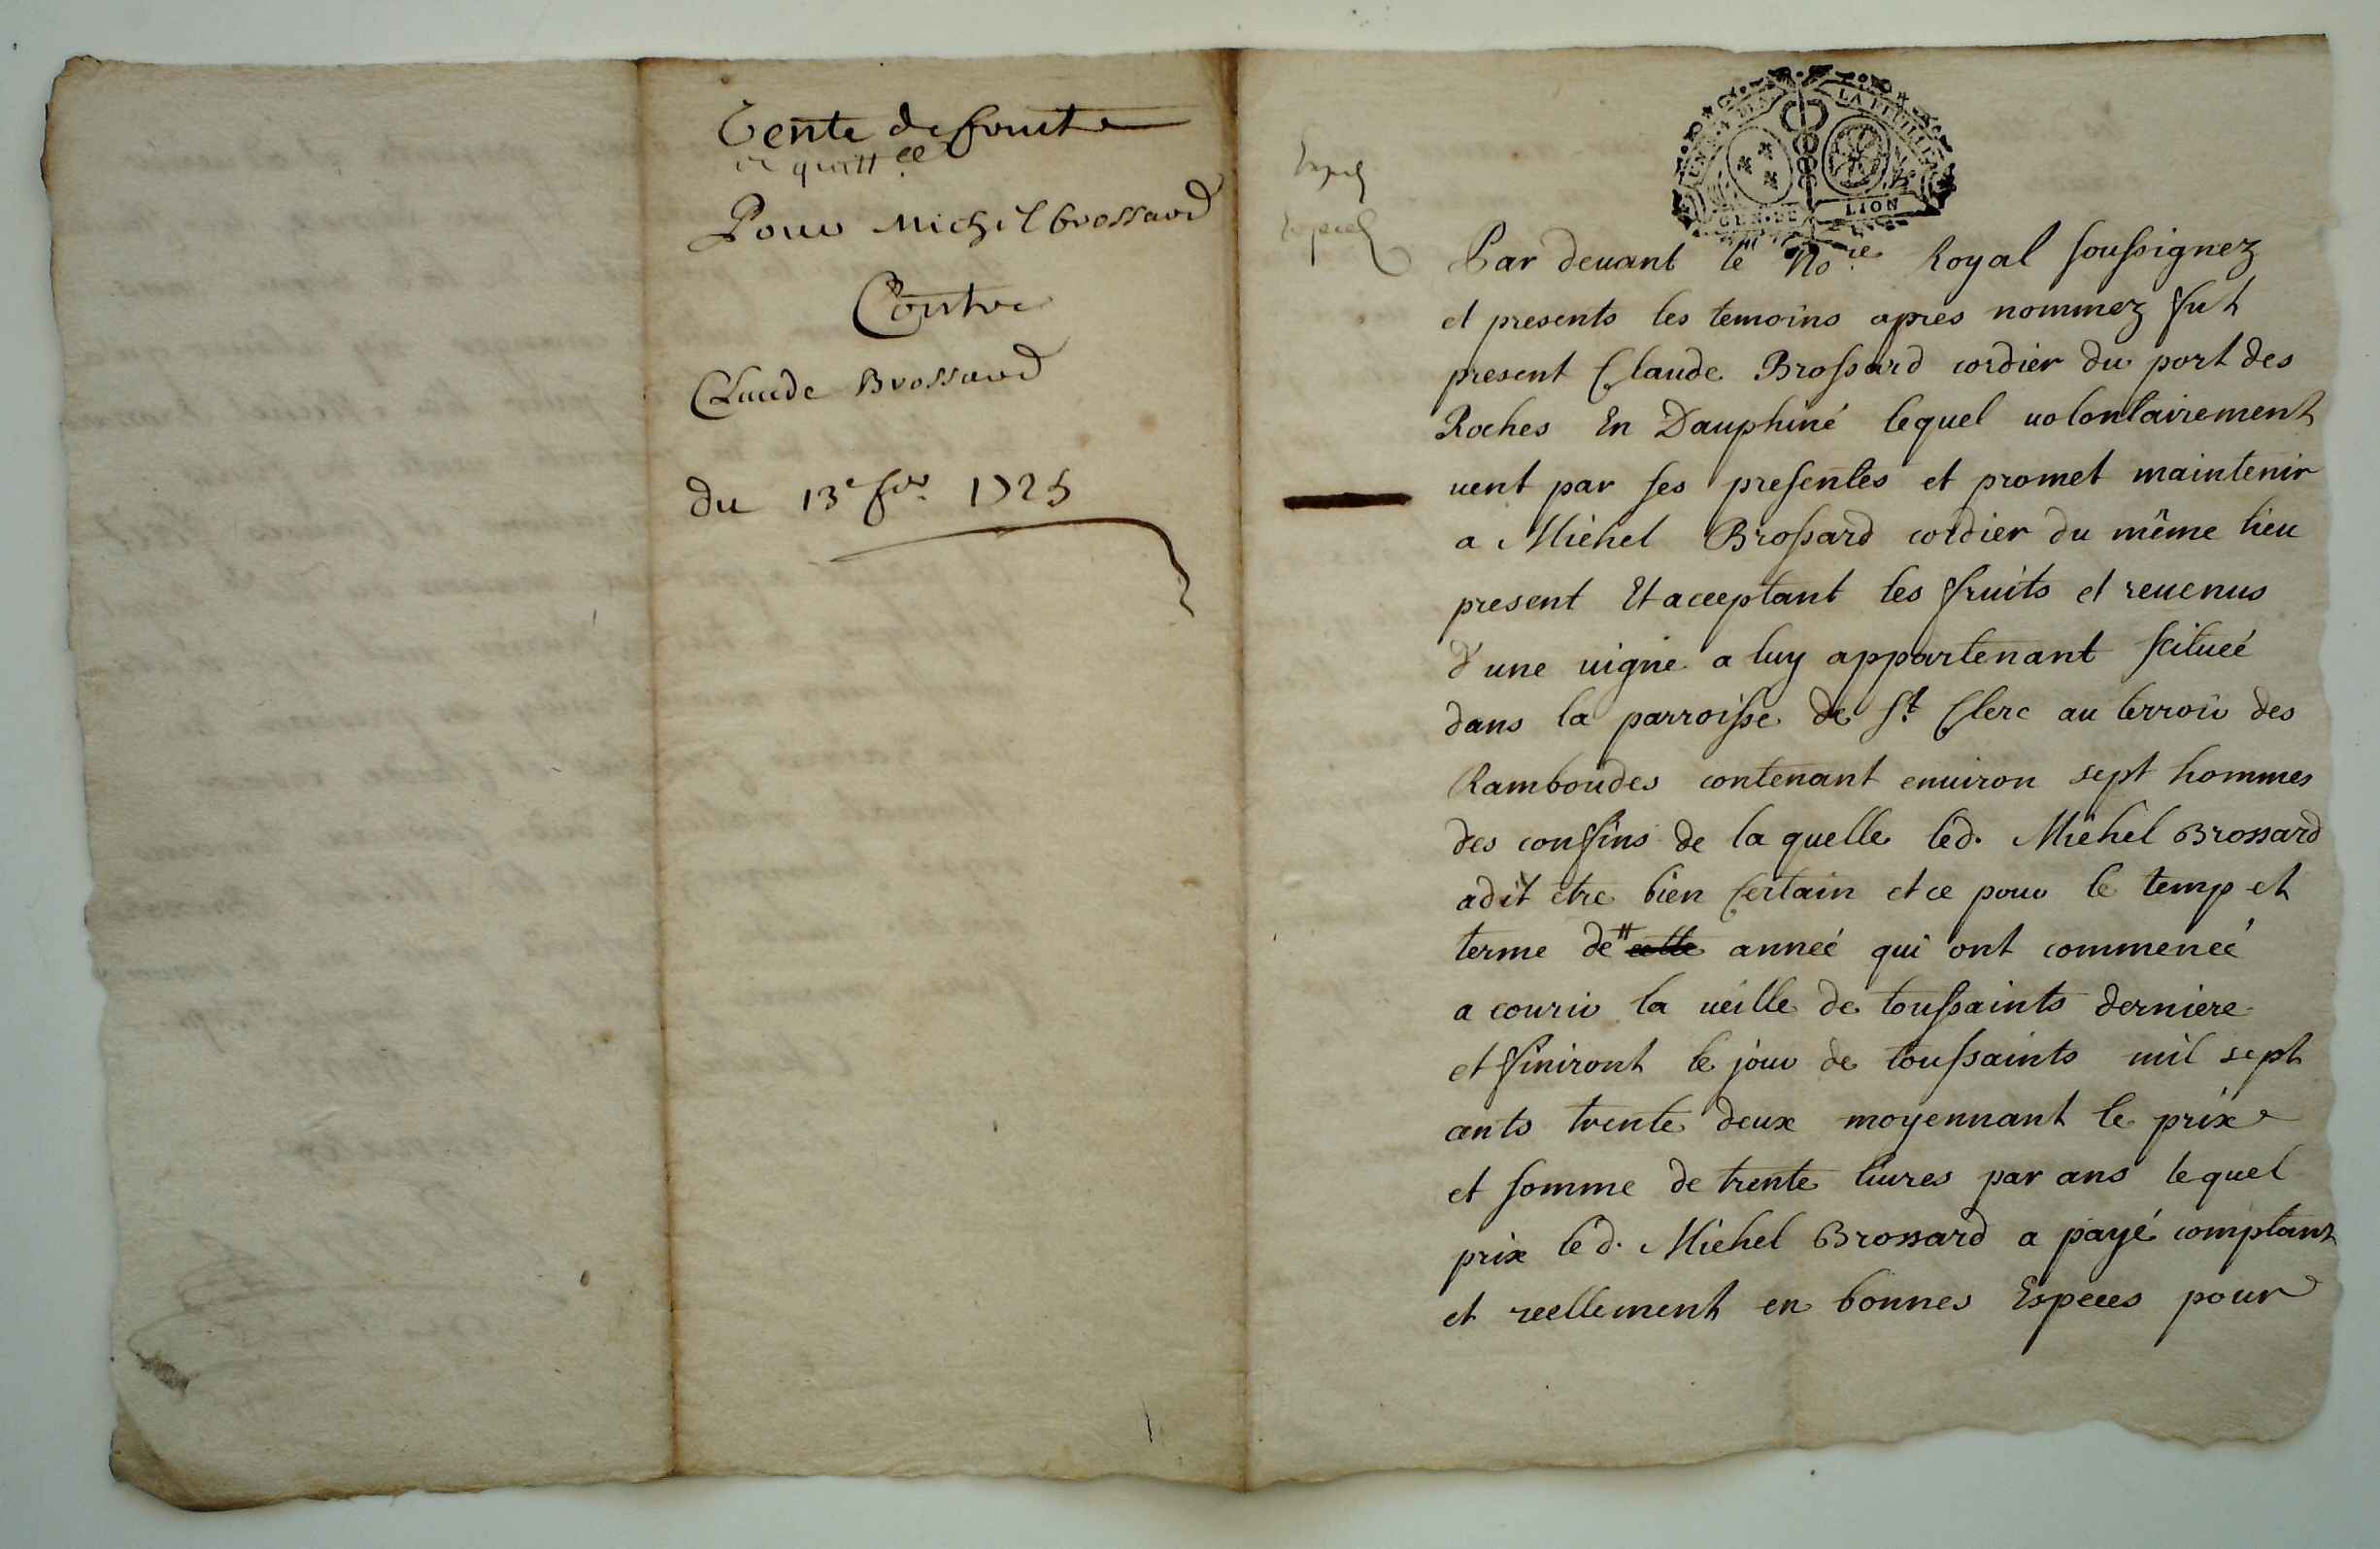 Vente de fruit
et quittce
Pour Michel brossard
Contre
Claude Brossard
du 13e fvr 1725
LA FEUILLE
GEN. DE LION
Par deuant le Nore Royal soussignez
et presents les temoins apres nommez fut
present Claude Brossard cordier du port des
Roches En Dauphiné lequel uolontairement
uent par ses presentes et promet maintenir
a Michel Brossard cordier du même lieu
present Et acceptant les fruits et reuenus
d'une uigne a luy appartenant scituée
dans la parroisse de St Clerc au terroir des
Ramboudes contenant enuiron sept hommes
des confins de la quelle led. Michel Brossard
a dit etre bien Certain et ce pour le temp et
terme de cette année qui ont commencé
a courir la ueille de toussaints derniere
et finiront le jour de toussaints mil sept
cents trente deux moyennant le prix
et somme de trente liures par ans lequel
prix led. Michel Brossard a payé comptant
et reellement en bonnes Especes pour